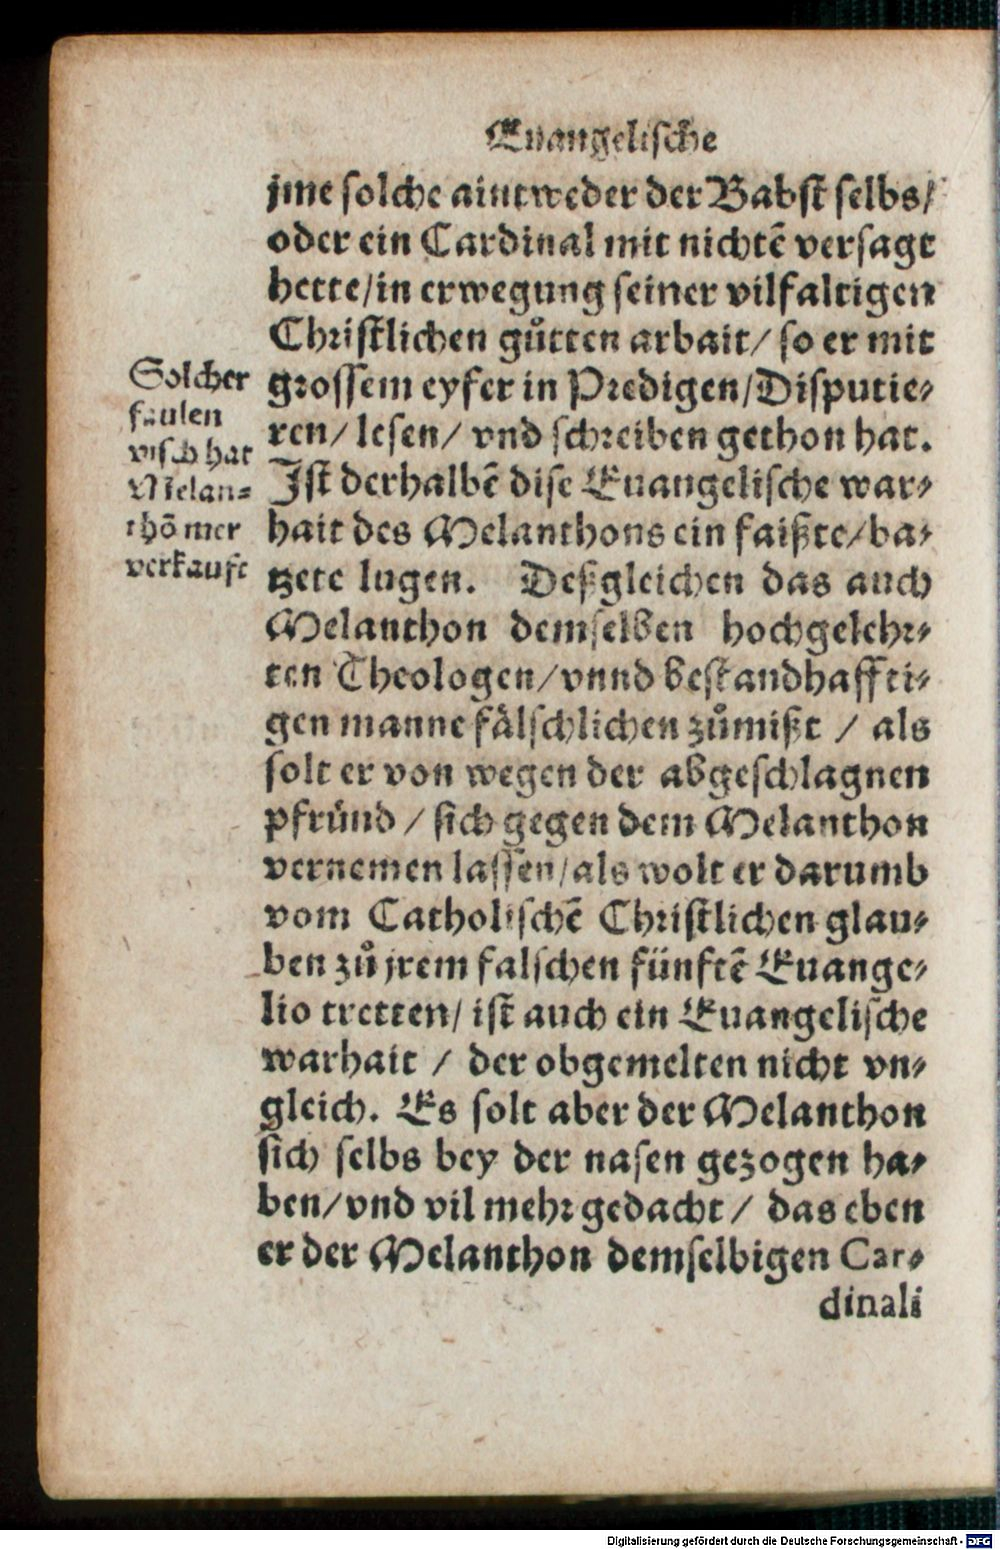 Euangelische
jme solche aintweder der Babst selbs/
oder ein Cardinal mit nichtẽ versagt
hette/in erwegung seiner vilfaltigen
Christlichen gůtten arbait/ so er mit
grossem eyfer in Predigen/Disputie-
ren/ lesen/ vnd schreiben gethon hat.
Ist derhalbẽ dise Euangelische war-
hait des Melanthons ein faißte/ba-
tzete lugen. Deßgleichen das auch
Melanthon demselben hochgelehr-
ten Theologen/vnnd bestandhaffti-
gen manne fälschlichen zůmißt / als
solt er von wegen der abgeschlagnen
pfründ / sich gegen dem Melanthon
vernemen lassen/als wolt er darumb
vom Catholischẽ Christlichen glau-
ben zů jrem falschen fünftẽ Euange-
lio tretten/ ist auch ein Euangelische
warhait / der obgemelten nicht vn-
gleich. Es solt aber der Melanthon
sich selbs bey der nasen gezogen ha-
ben/vnd vil mehr gedacht / das eben
er der Melanthon demselbigen Car-
dinali
Solcher
faulen
visch hat
Melan-
thõ mer
verkauft
Digitalisierung gefördert durch die Deutsche Forschungsgemeinschaft - DFG